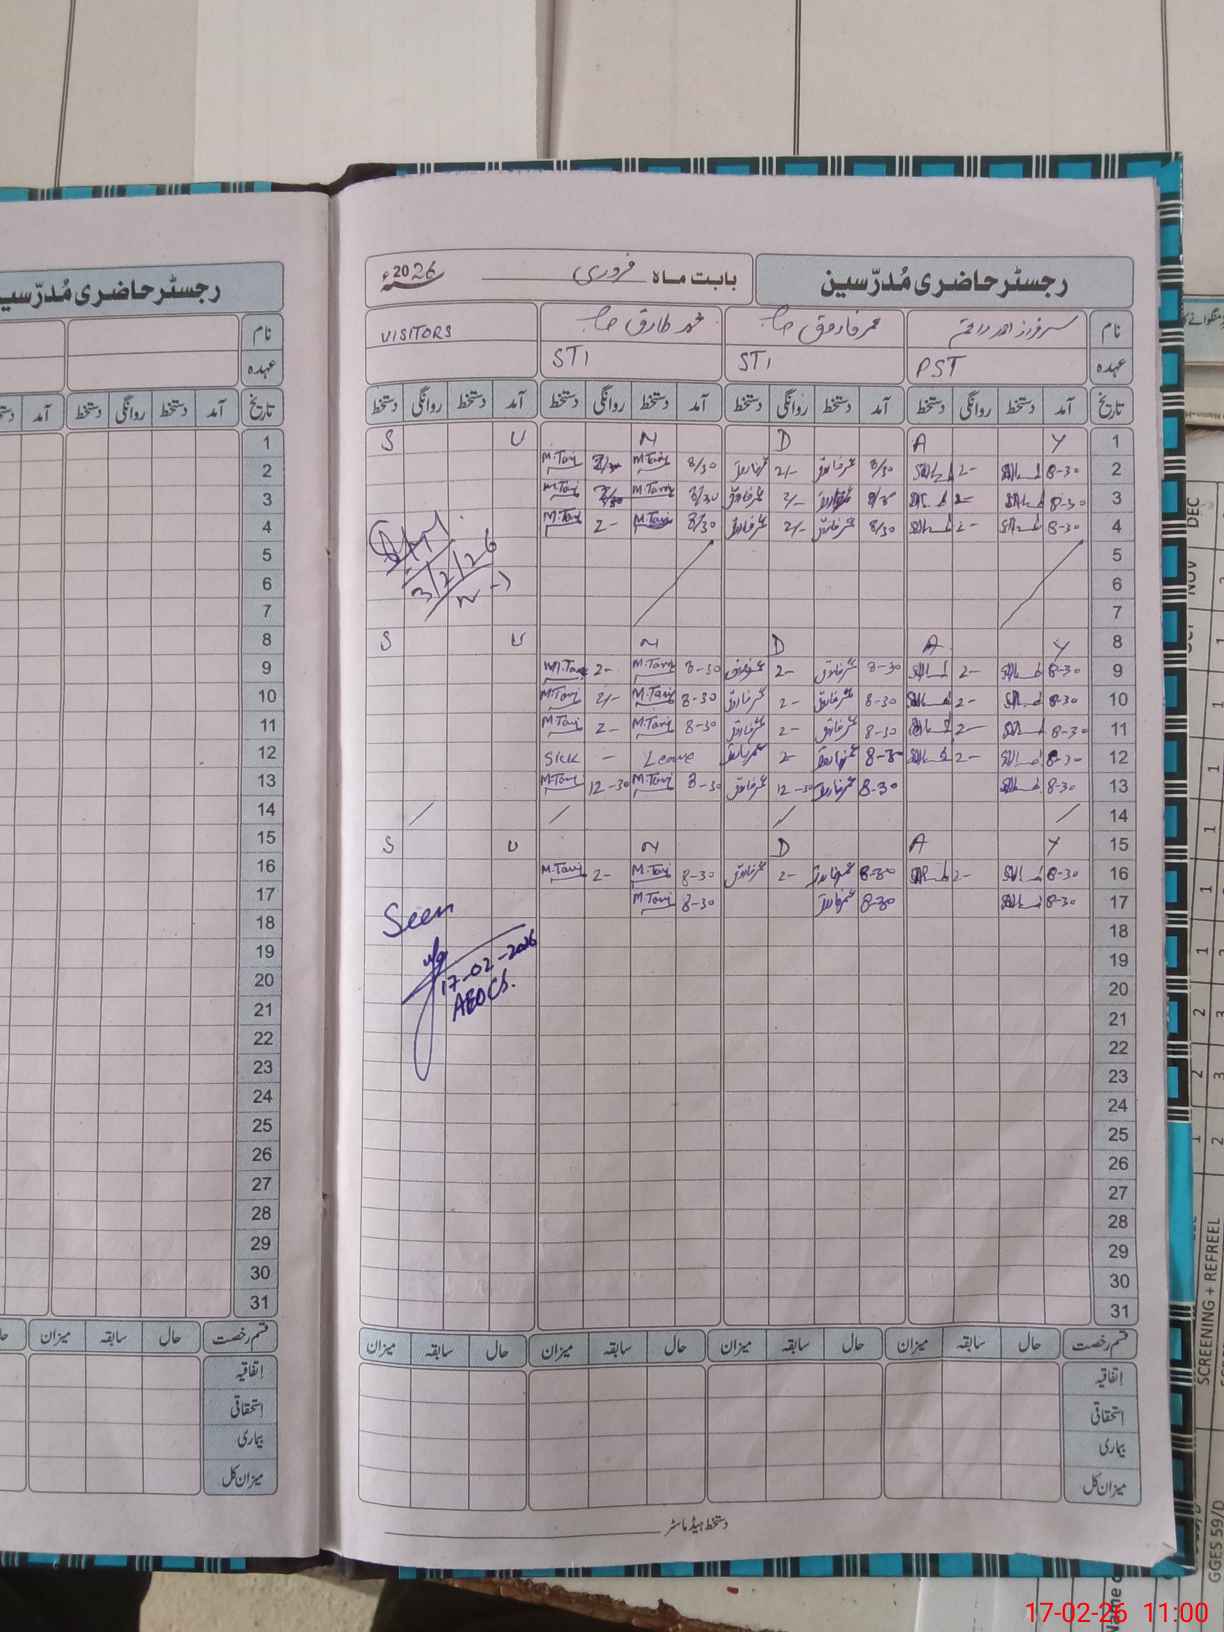 رجسٹر حاضری مُدرّسین
بابت ماہ فروری 2026ء
نام سرفراز احمد عمر فاروق صاحب محمد طارق صاحب VISITORS
عہدہ PST STI STI
تاریخ آمد دستخط روانگی دستخط آمد دستخط روانگی دستخط آمد دستخط روانگی دستخط آمد دستخط روانگی دستخط
1 S U N D A Y
2 8-30 2- 8/30 عمر فاروق 2/- عمر فاروق 8/30 M.Tariq M.Tariq
3 8-30 2- عمر فاروق 2/- عمر فاروق 8/30 M.Tariq M.Tariq
4 8-30 2- 8/30 عمر فاروق 2/- عمر فاروق 8/30 M.Tariq 2- M.Tariq
5
3/2/26
6
7
8 S U N D A Y
9 8-30 2- 8-30 عمر فاروق 2- عمر فاروق 8-30 M.Tariq 2- M.Tariq
10 8-30 2- 8-30 عمر فاروق 2- عمر فاروق 8-30 M.Tariq 2/- M.Tariq
11 8-30 2- 8-30 عمر فاروق 2- عمر فاروق 8-30 M.Tariq 2- M.Tariq
12 8-30 2- 8-30 عمر فاروق 2- عمر فاروق Leave - Sick
13 8-30 8-30 عمر فاروق 12-30 عمر فاروق 8-30 M.Tariq 12-30 M.Tariq
14
15 S U N D A Y
16 8-30 2- 8-30 عمر فاروق 2- عمر فاروق 8-30 M.Tariq 2- M.Tariq
17 8-30 8-30 عمر فاروق 8-30 M.Tariq
Seen
18
19
17-02-2026
20
AEOCS.
21
22
23
24
25
26
27
28
29
30
31
قسم رخصت حال سابقہ میزان حال سابقہ میزان حال سابقہ میزان حال سابقہ میزان
اتفاقیہ
استحقاقی
بیماری
میزان کل
دستخط ہیڈ ماسٹر
رجسٹر حاضری مُدرّسین
نام
عہدہ
تاریخ آمد دستخط روانگی دستخط آمد
1
2
3
4
5
6
7
8
9
10
11
12
13
14
15
16
17
18
19
20
21
22
23
24
25
26
27
28
29
30
31
قسم رخصت حال سابقہ میزان
اتفاقیہ
استحقاقی
بیماری
میزان کل
DEC
NOV
SCREENING + REFREEL
GGES 59/D
17-02-26 11:00